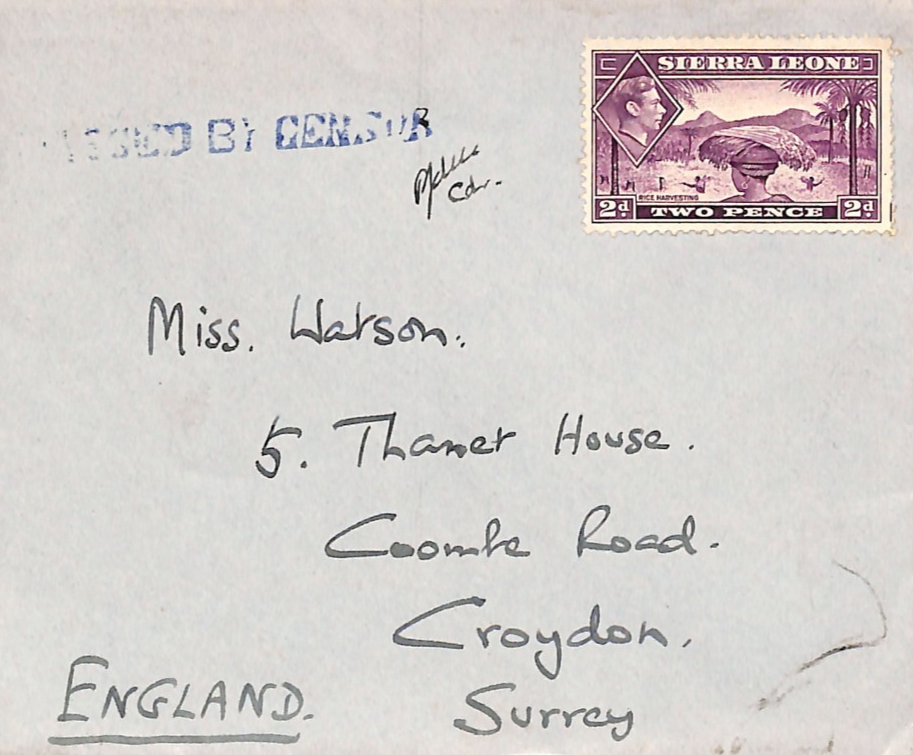 SIERRA LEONE
PASSED BY CENSOR
RICE HARVESTING
2d. TWO PENCE 2d.
Miss. Watson.
5. Thanet House.
Coombe Road.
Croydon.
Surrey
ENGLAND.